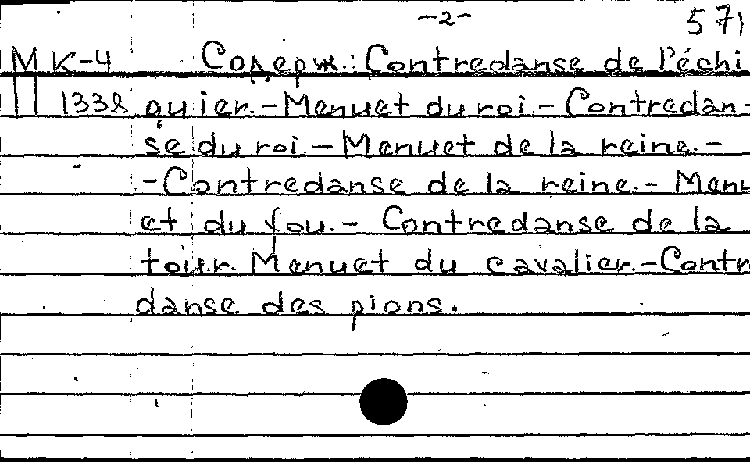 -2- 571
М К-4 Содерж.: Contredanse de l'échi
1338 quier.-Menuet du roi.- Contredan-
se du roi - Menuet de la reine.-
-Contredanse de la reine.- Menu
et du fou.- Contredanse de la
tour. Menuet du cavalier.-Contre
danse des pions.